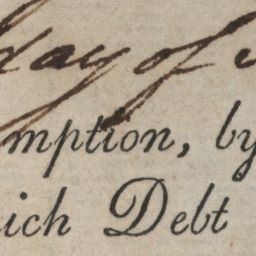 day of
mption, by
ich Debt